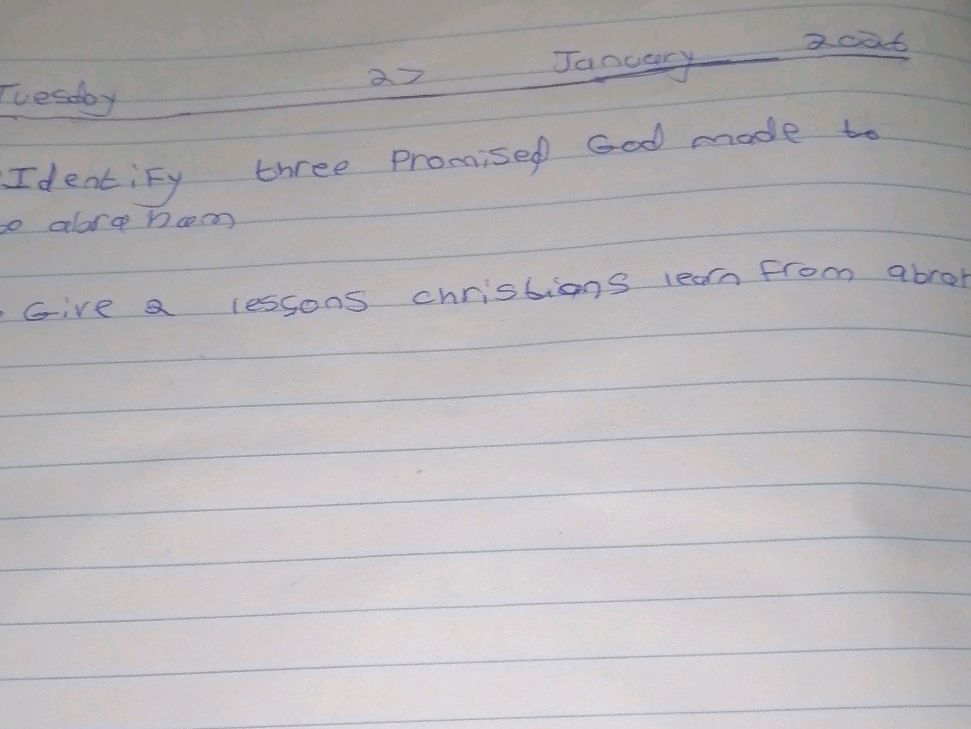 Tuesday 27 January 2026
Identify three Promised God made to
to abraham
Give 2 lessons christians learn from abrah